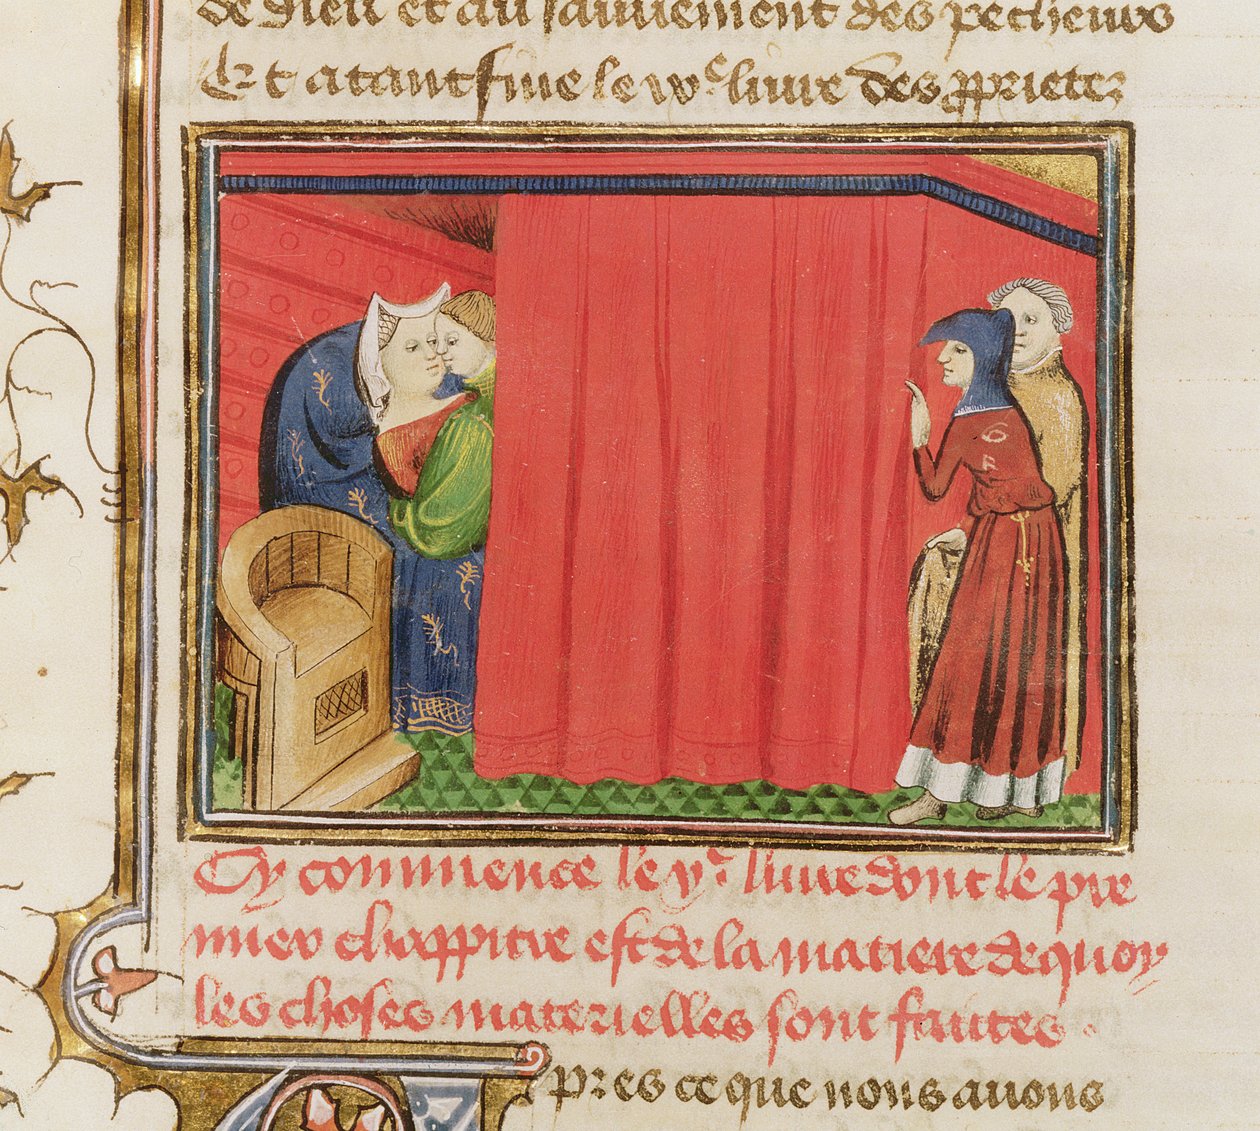 de dieu et au sauuement des pecheurs
Et atant fine le ixe liure des pprietez
Cy commence le xe liure dont le pre
mier chappitre est de la matiere de quoy
les choses materielles sont faites .
pres ce que nous auons